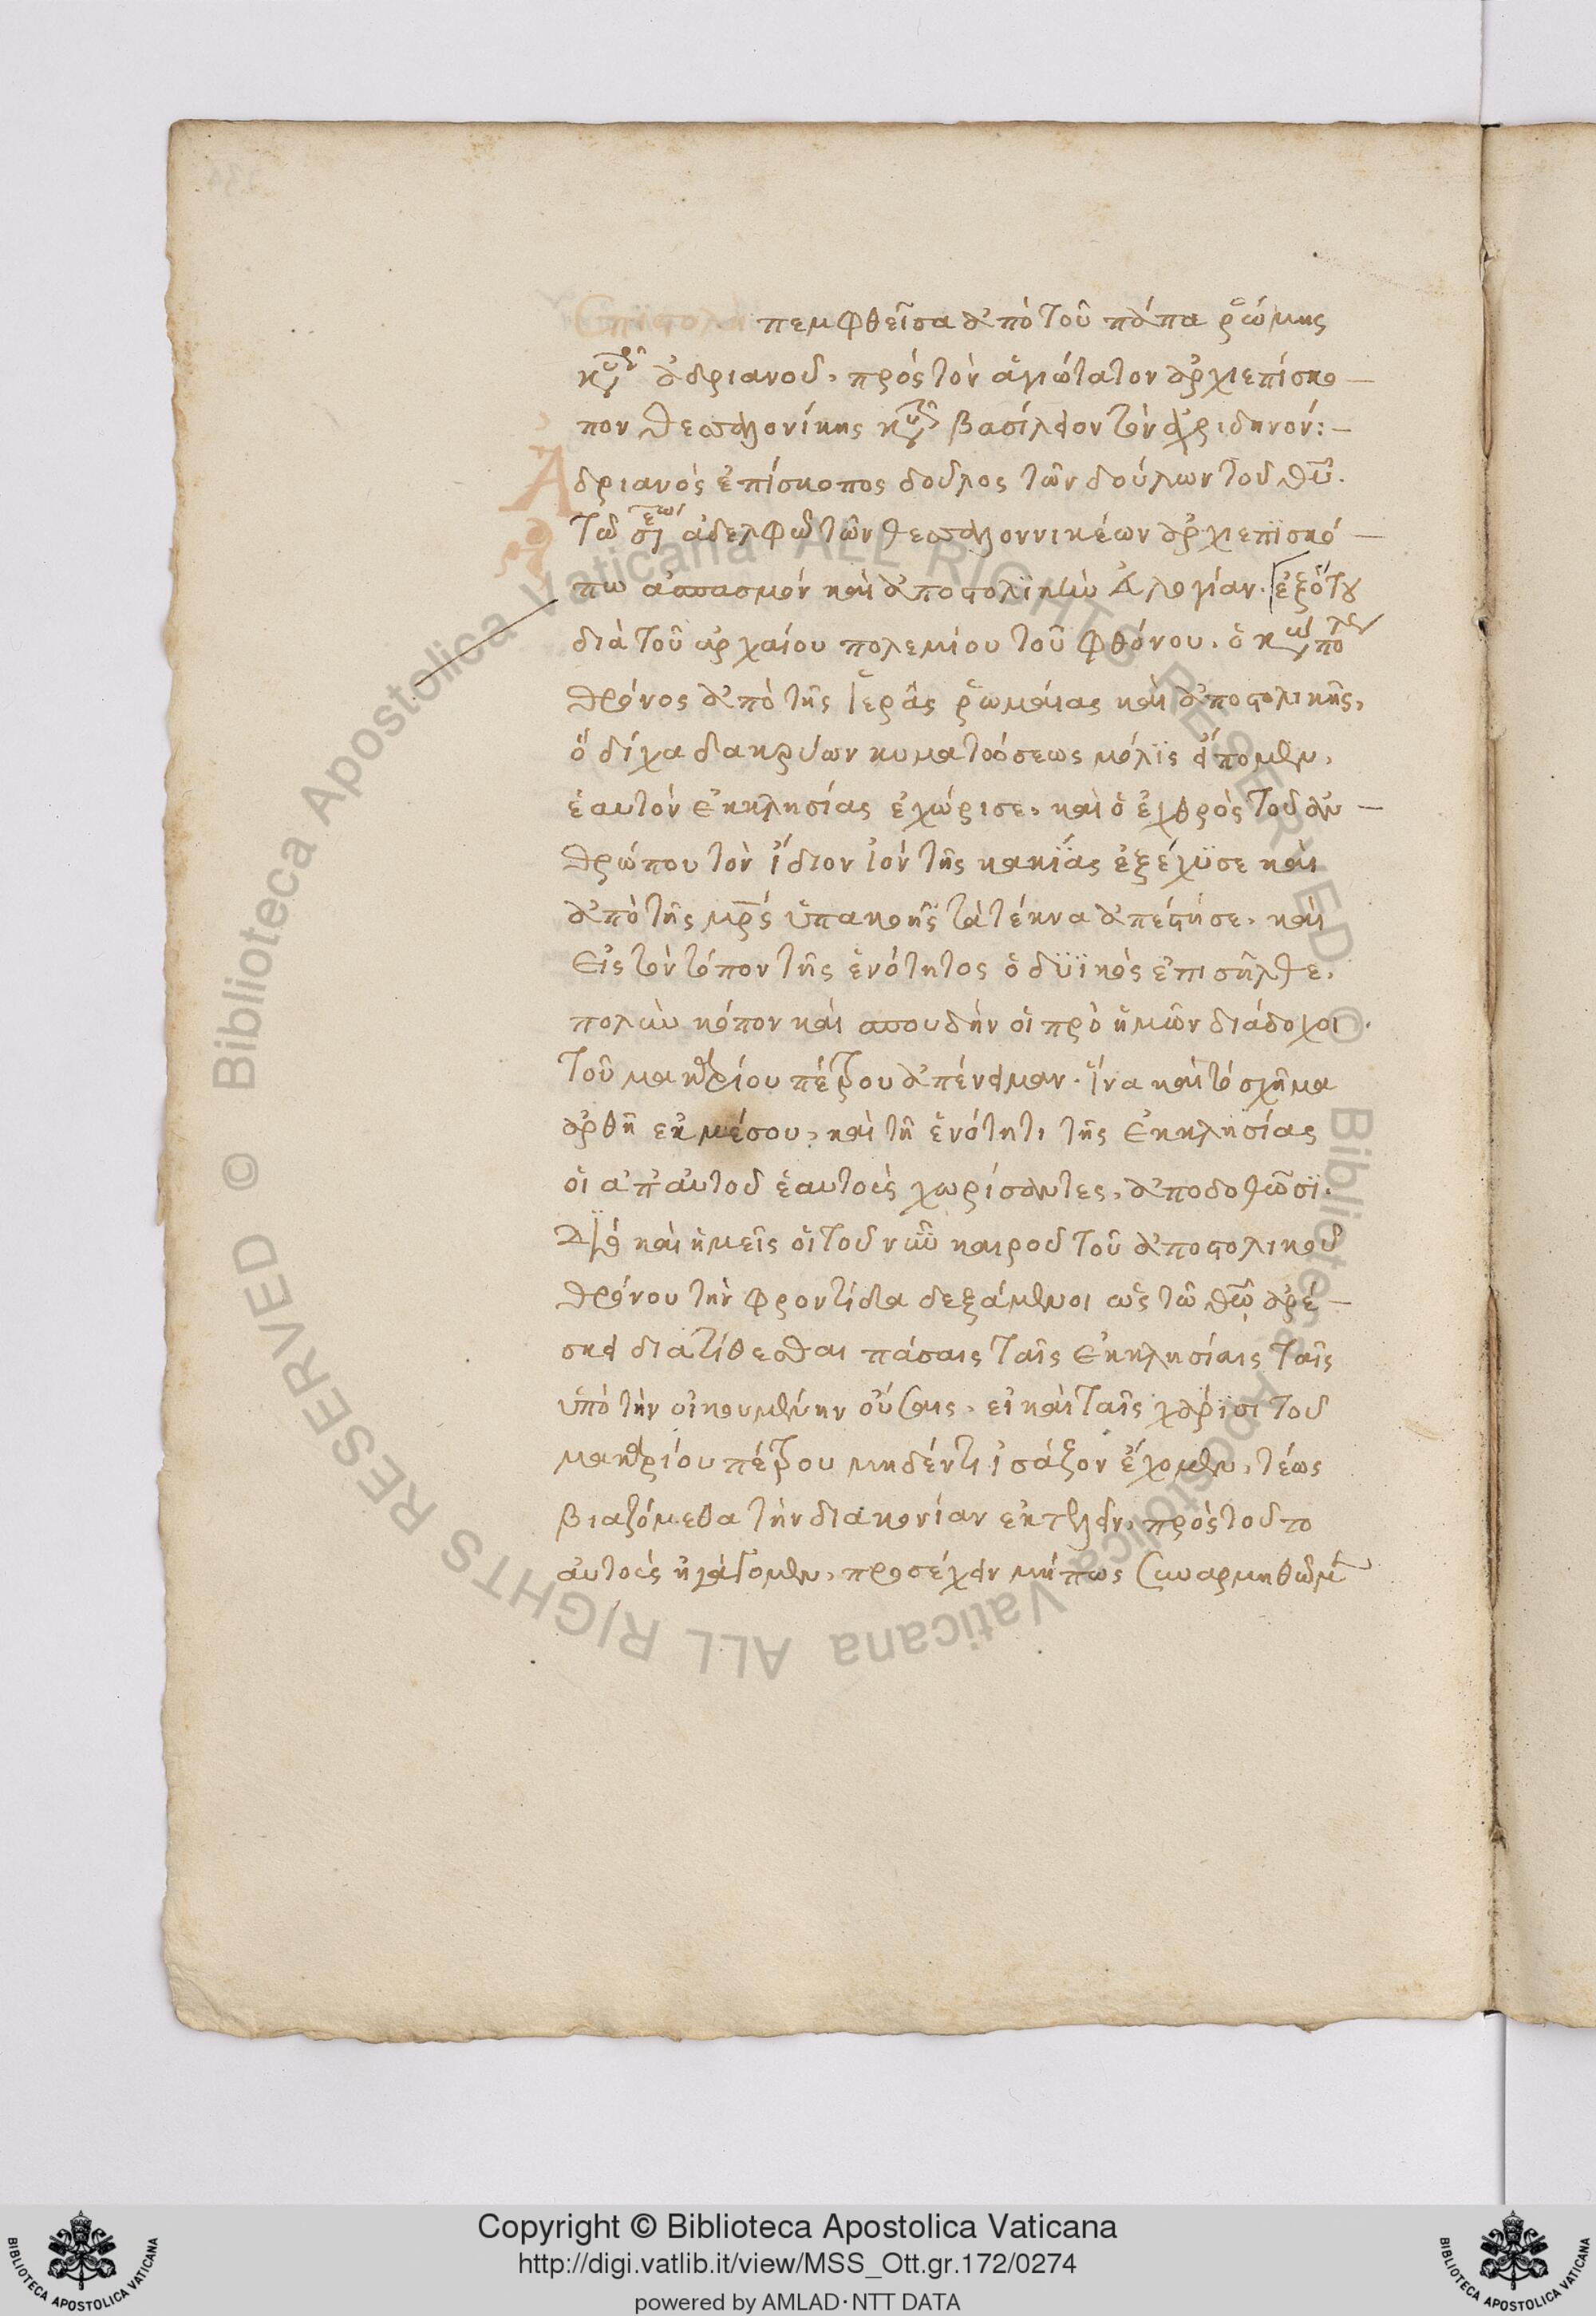 Ἐπιστολὴ πεμφθεῖσα ἀπὸ τοῦ πάπα ῥώμης
κυροῦ ἀδριανοῦ, πρὸς τὸν ἁγιώτατον ἀρχιεπίσκο –
πον θεσσαλονίκης κυρὸν βασίλειον τὸν ἀχριδηνόν: –
Ἀδριανὸς ἐπίσκοπος δοῦλος τῶν δούλων τοῦ θυ.
τῶ ἀδελφῶ τῶν θεσσαλοννικέων ἀρχιεπϊσκό –
πω ἀσπασμὸν καὶ ἀποστολϊκὴν εὐλογίαν. ἐξότου
διὰ τοῦ ἀρχαίου πολεμίου τοῦ φθόνου, ὁ
θρόνος ἀπὸ τῆς ἱερᾶς ῥωμαίας καὶ ἀποστολικῆς,
ὃ δίχα δακρύων κυματώσεως μόλϊς εἴπομεν,
ἑαυτὸν ἐκκλησίας ἐχώρισε, καὶ ὁ ἐχθρὸς τοῦ ἀν –
θρώπου τὸν ἴδιον ἰὸν τῆς κακΐας ἐξέχϋσε καὶ
ἀπὸ τῆς μρς ὑπακοῆς τὰ τέκνα ἀπέστησε. καὶ
εἰς τὸν τόπον τῆς ἑνότητος ὁ δϋϊκὸς ἐπισῆλθε,
πολὺν κόπον καὶ σπουδὴν οἱ πρὸ ἡμῶν διάδοχοι
τοῦ μακαρίου πέτρου ἀπένειμαν. ἵνα καὶ τὸ σχῆμα
ἀρθῆ ἐκ μέσου, καὶ τῆ ἑνότητι τῆς ἐκκλησίας
οἱ ἀπ' αὐτοῦ ἑαυτοὺς χωρίσαντες, ἀποδοθῶσϊ.
Διὸ καὶ ἡμεῖς οἱ τοῦ νῦν καιροῦ τοῦ ἀποστολικοῦ
θρόνου τὴν φροντίδα δεξάμενοι ὡς τῶ θῶ ἀρέ –
σκει διατίθεσθαι πάσαις ταῖς ἐκκλησίαις ταῖς
ὑπὸ τὴν οἰκουμένην οὔσαις, εἰ καὶ ταῖς χάρισι τοῦ
μακαρίου πέτρου μηδέν τι ἰσάζον ἔχομεν, τέως
βιαζόμεθα τὴν διακονίαν ἐκτελεῖν, πρὸς τοῦτο
αὐτοὺς προσέχειν μήπως
Copyright © Biblioteca Apostolica Vaticana
http://digi.vatlib.it/view/MSS_Ott.gr.172/0274
powered by AMLAD·NTT DATA